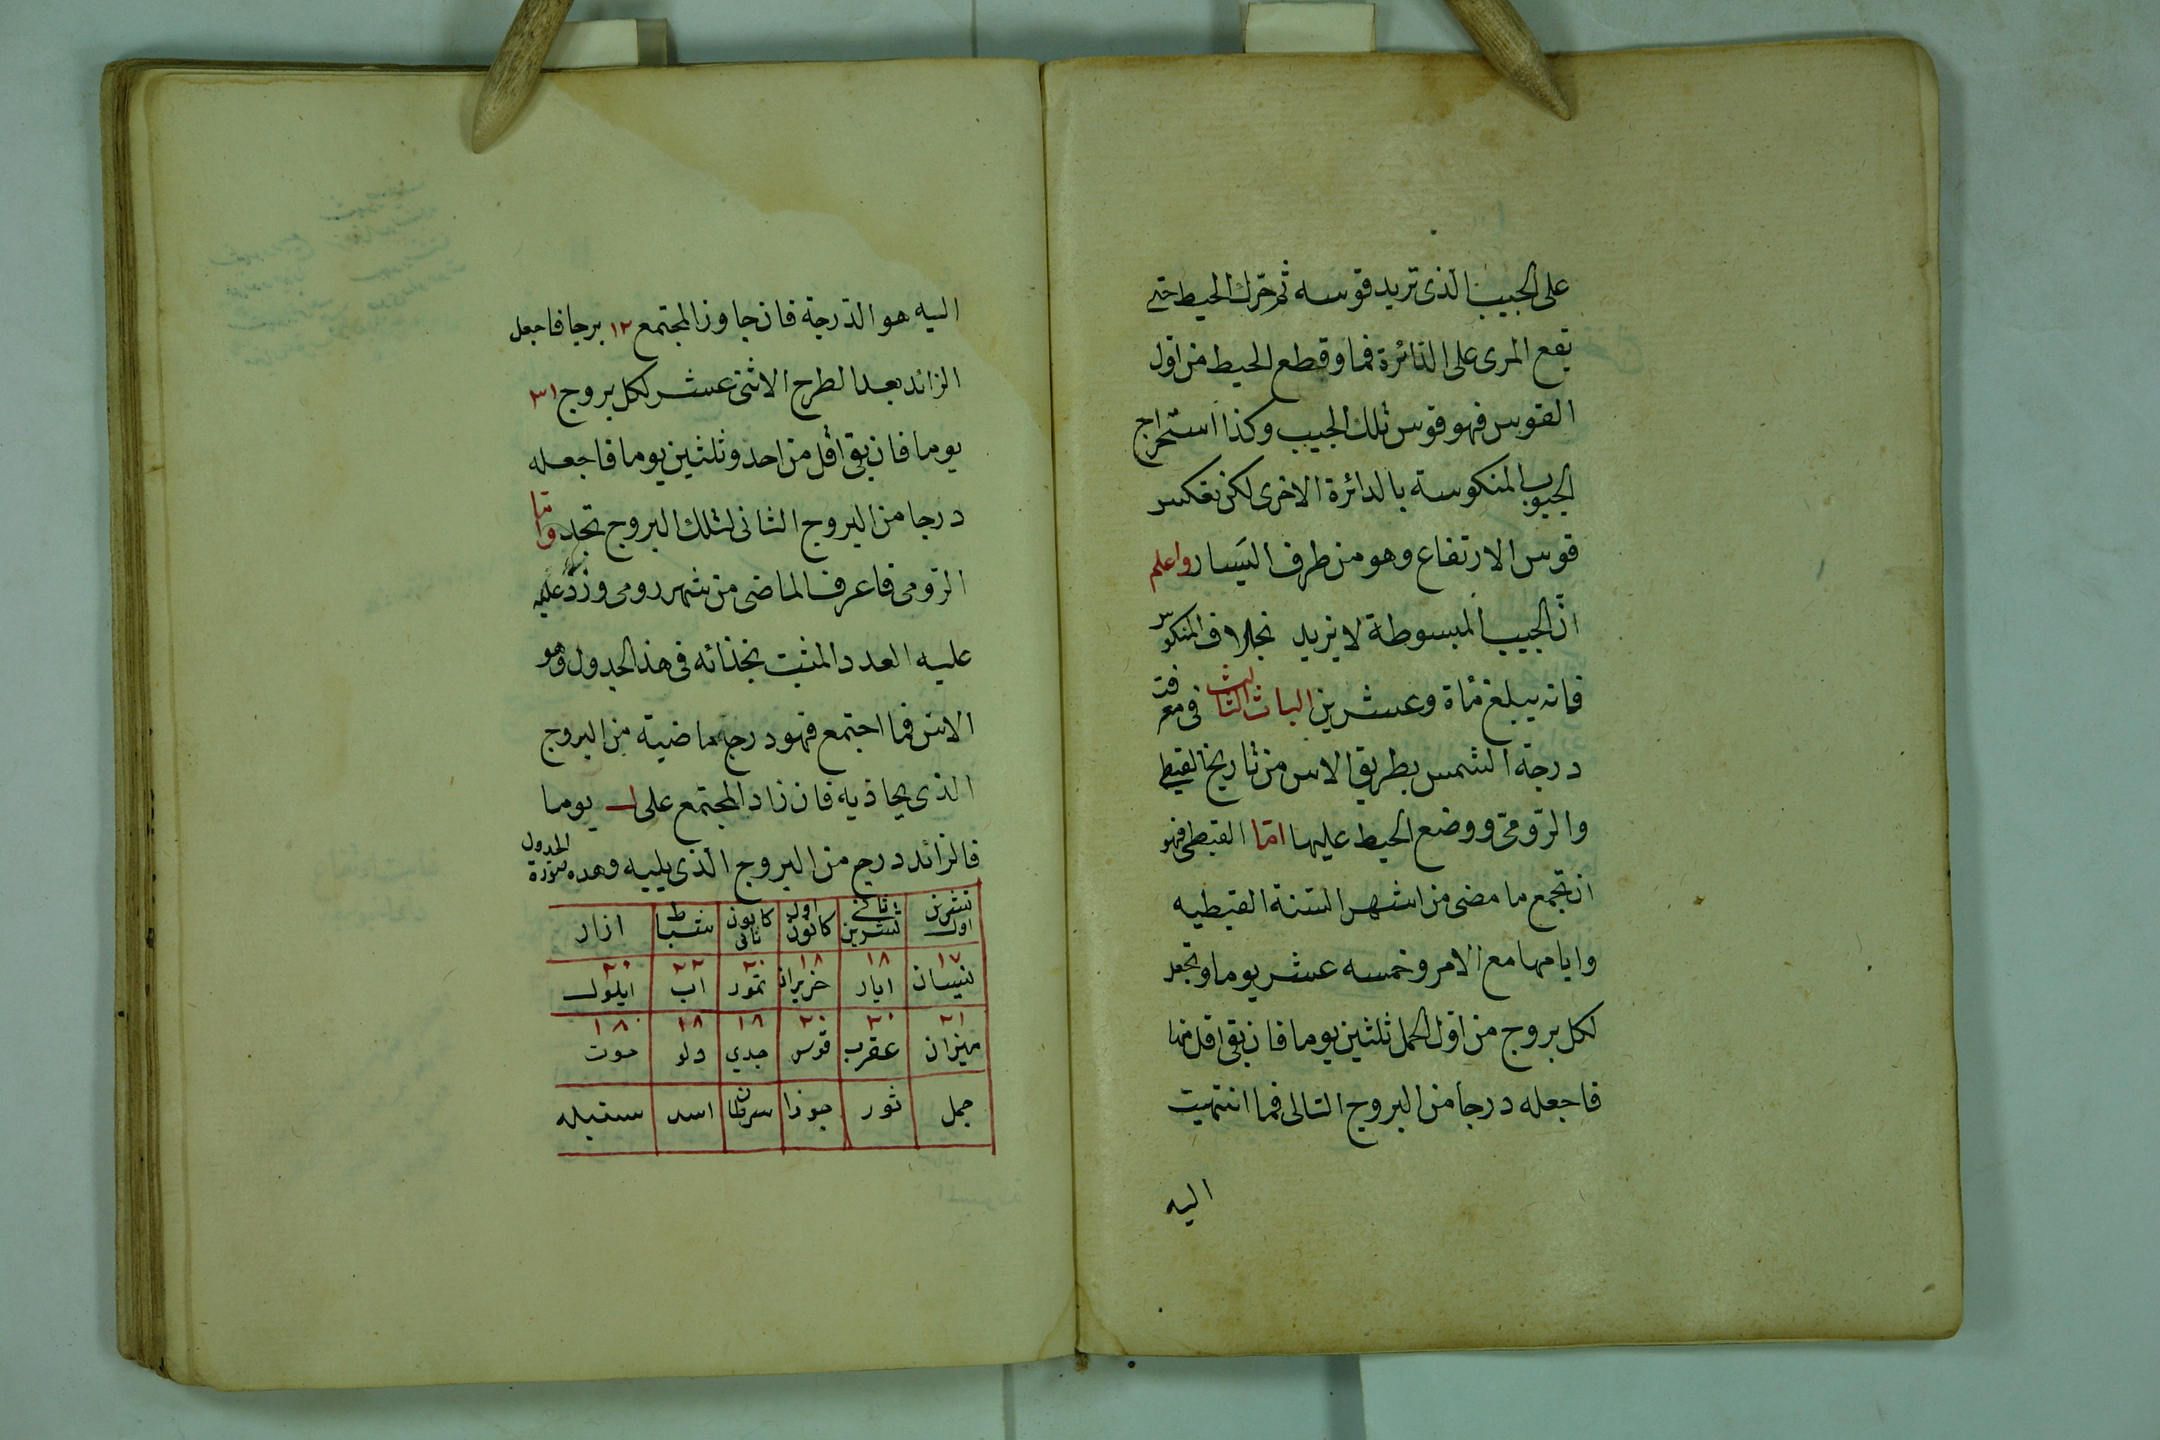 على الجيب الذى تريد قوسه ثم حرك الخيط حتى
يقع المرى على الدائرة فما وقطع الخيط من اول
القوس فهو قوس تلك الجيب وكذا استخراج
الجيوب المنكوسة بالدائرة الاخرى لكن تعكس
قوس الارتفاع وهو من طرف اليسار واعلم
ان الجيب المبسوطة لا يزيد بخلاف المنكوس
فانه يبلغ مأة وعشرين الباب الثالث فى معرفت
درجة الشمس بطريق الاس من تاريخ القبطى
والرومى ووضع الخيط عليها اما القبطى فهو
ان تجمع ما مضى من اشهر السنة القبطيه
وايامها مع الامر وخمسه عشر يوما وتجعل
لكل بروج من اول الحمل ثلثين يوما فان بقى اقل منها
فاجعله درجا من البروج التالى فما انتهيت
اليه
اليه هو الدرجة فان جاوز المجتمع ١٢ برجا فاجعل
الزائد بعد الطرح الاثنى عشر لكل بروج ٣١
يوما فان بقى اقل من احد وثلثين يوما فاجعله
درجا من البروج الثانى لتلك البروج تجد واما
الرومى فاعرف الماضى من شهر رومى وزد عليه
عليه العدد المثبت بحذائه فى هذ الجدول وهو
الاس فما اجتمع فهو درجة ماضية من البروج
الذى يحاذيه فان زاد المجتمع على ل يوما
فالزائد درج من البروج الذى يليه وهذه صورة الجدول
تشرين اول تشرين ثانى كانون اول كانون ثانى شباط ازار
١٧ ١٨ ١٨ ٢٠ ٢٢ ٢٠
نيسان ايار حزيران تموز اب ايلول
٢١ ٢٠ ٢٠ ١٨ ١٨ ١٨
ميزان عقرب قوس جدي دلو حوت
حمل ثور جوزا سرطان اسد سنبله